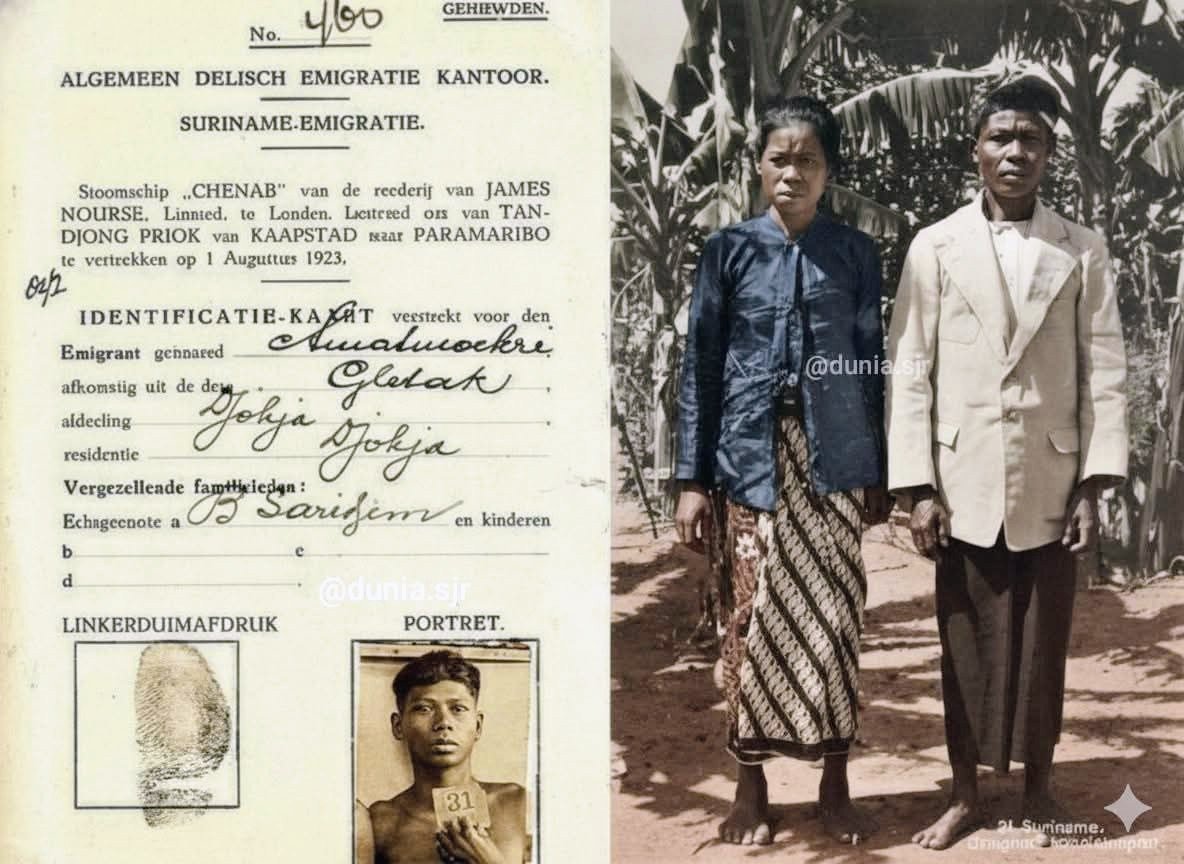 GEHIEWDEN.
No. 460
ALGEMEEN DELISCH EMIGRATIE KANTOOR.
SURINAME-EMIGRATIE.
Stoomschip „CHENAB" van de reederij van JAMES
NOURSE, Linnied. te Londen. Liestreed ors van TAN-
DJONG PRIOK van KAAPSTAD naar PARAMARIBO
te vertrekken op 1 Auguttus 1923,
IDENTIFICATIE-KAART veestrekt voor den
Emigrant gennaeed Amatmoekri
afkomstig uit de desa Gletak,
afdecling Djokja.
residentie Djokja
Vergezellende familieieden:
Echageenote a B Saridjem en kinderen
b c
d.
@dunia.sjr
LINKERDUIMAFDRUK PORTRET.
31
@dunia.sjr
21 Suriname.